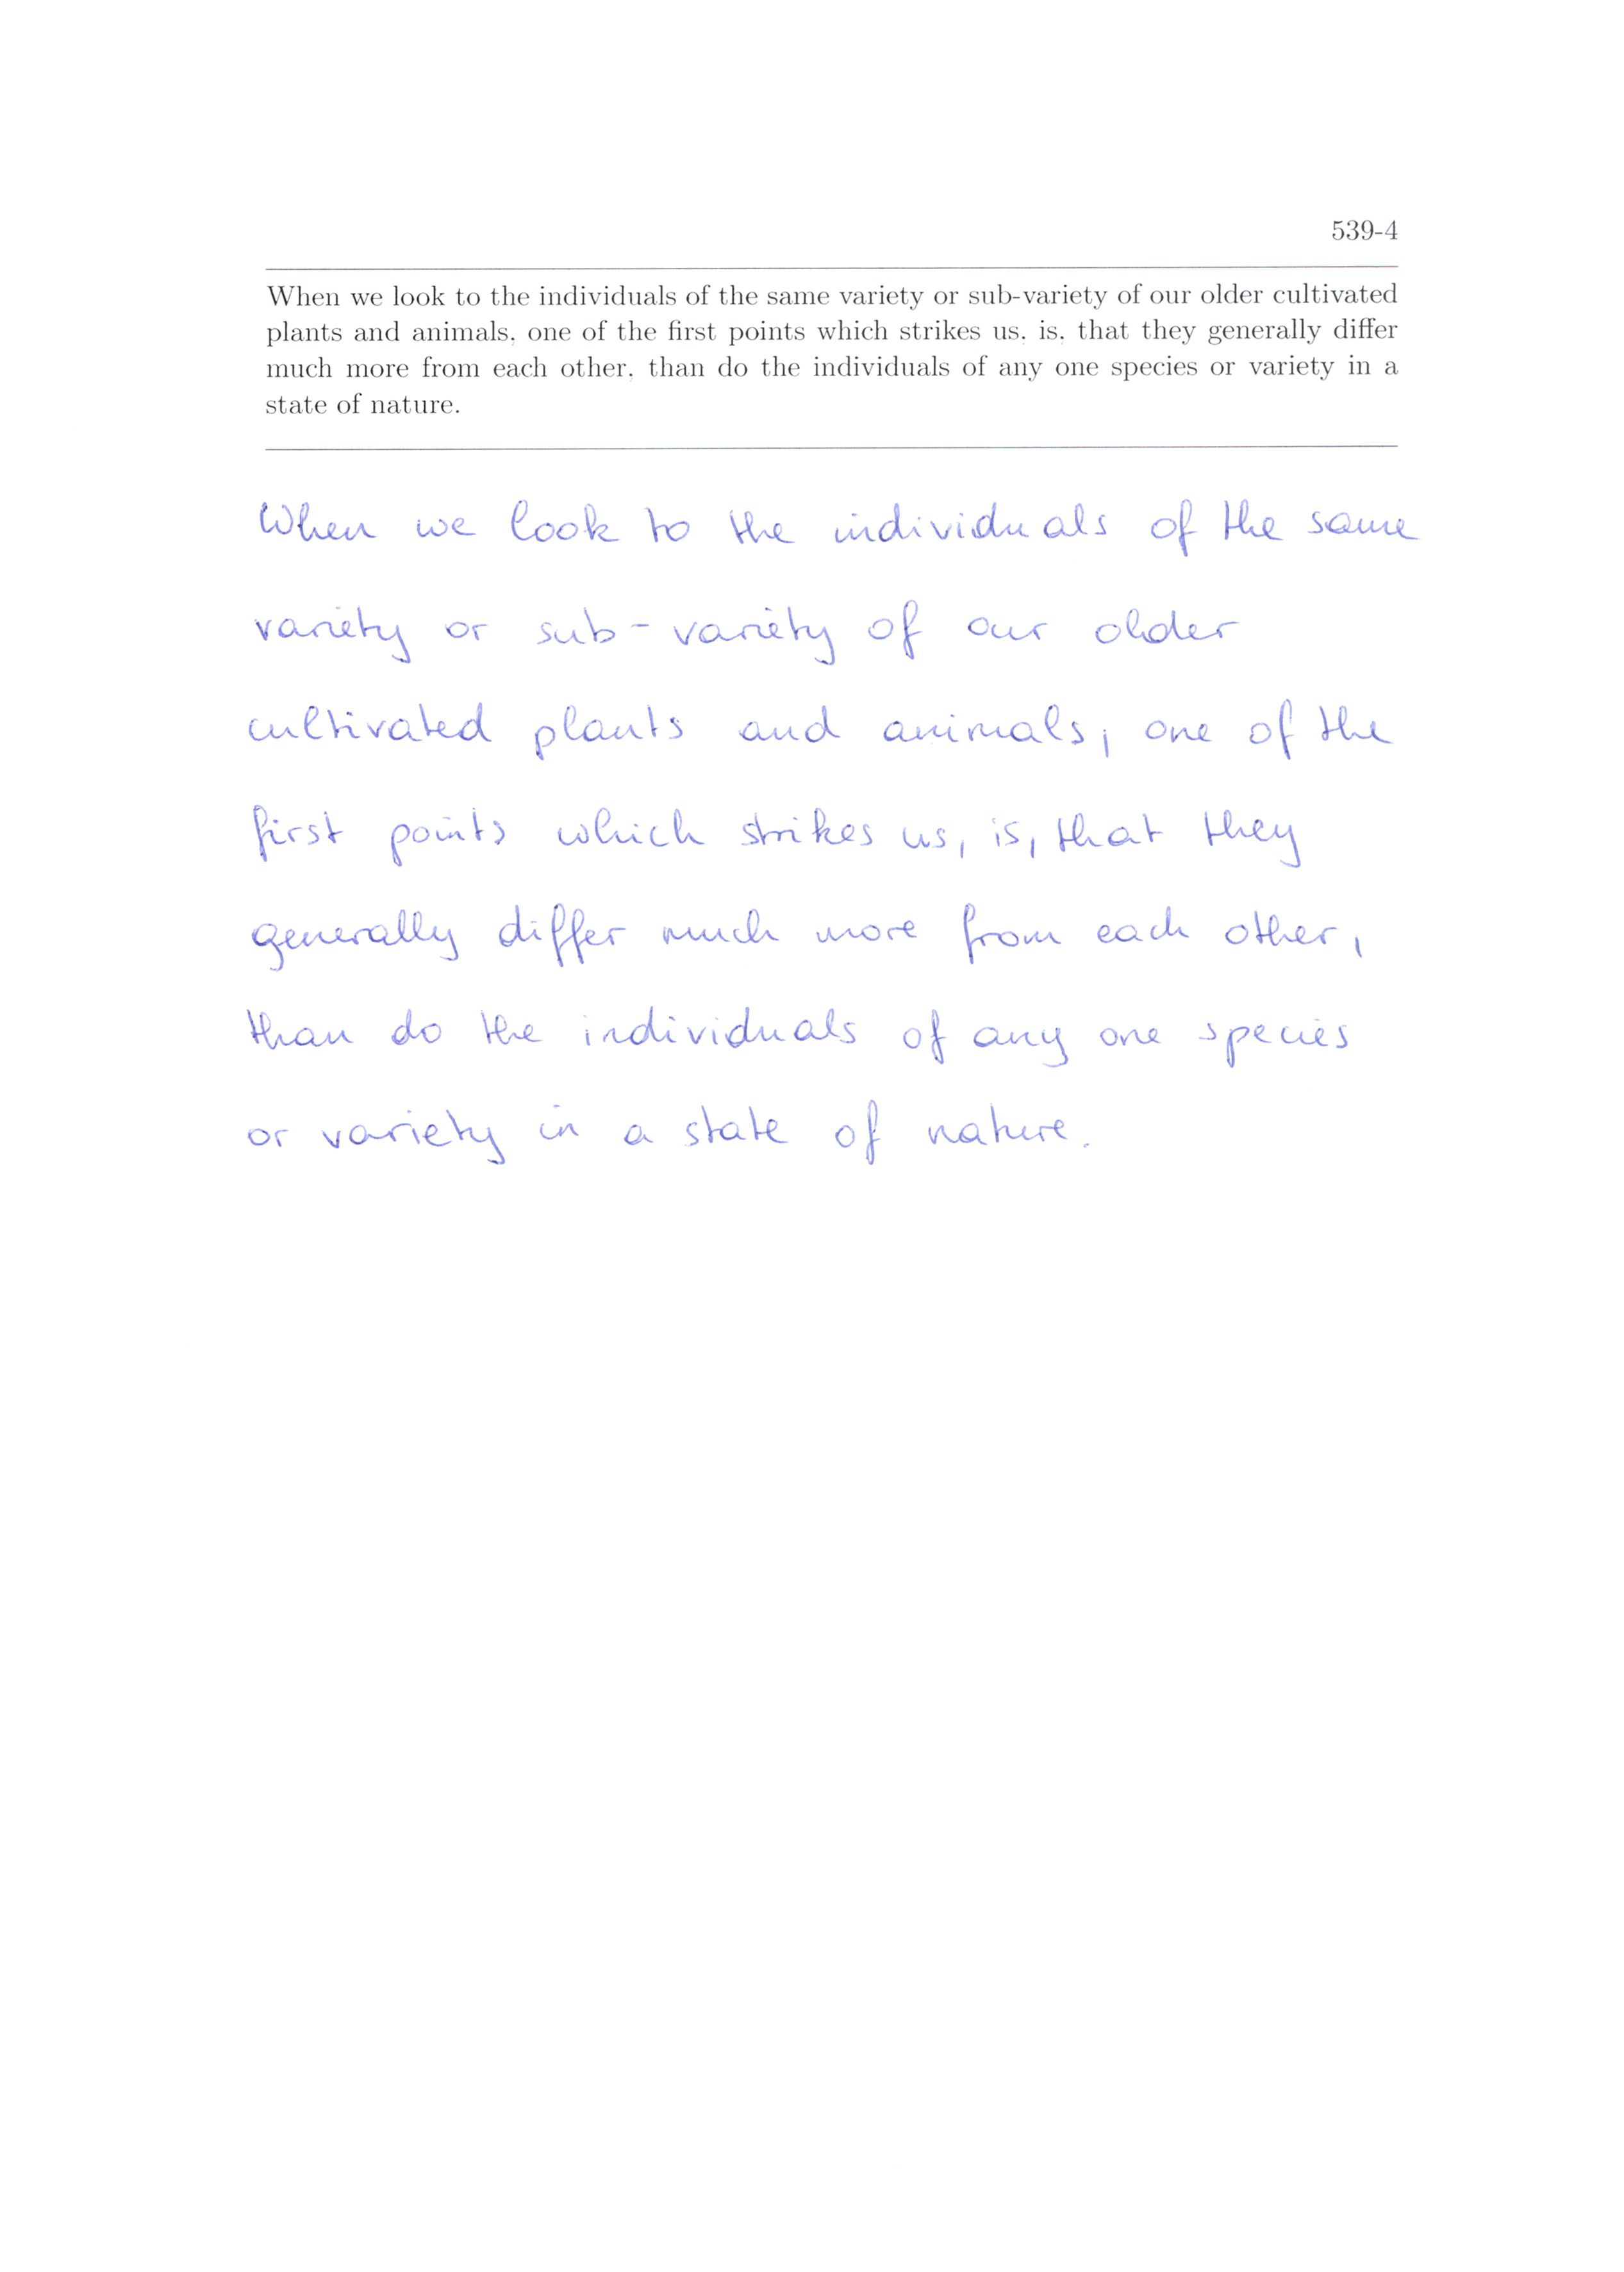 539-4
When we look to the individuals of the same variety or sub-variety of our older cultivated
plants and animals, one of the first points which strikes us, is, that they generally differ
much more from each other, than do the individuals of any one species or variety in a
state of nature.
When we look to the individuals of the same
variety or sub-variety of our older
cultivated plants and animals, one of the
first points which strikes us, is, that they
generally differ much more from each other,
than do the individuals of any one species
or variety in a state of nature.